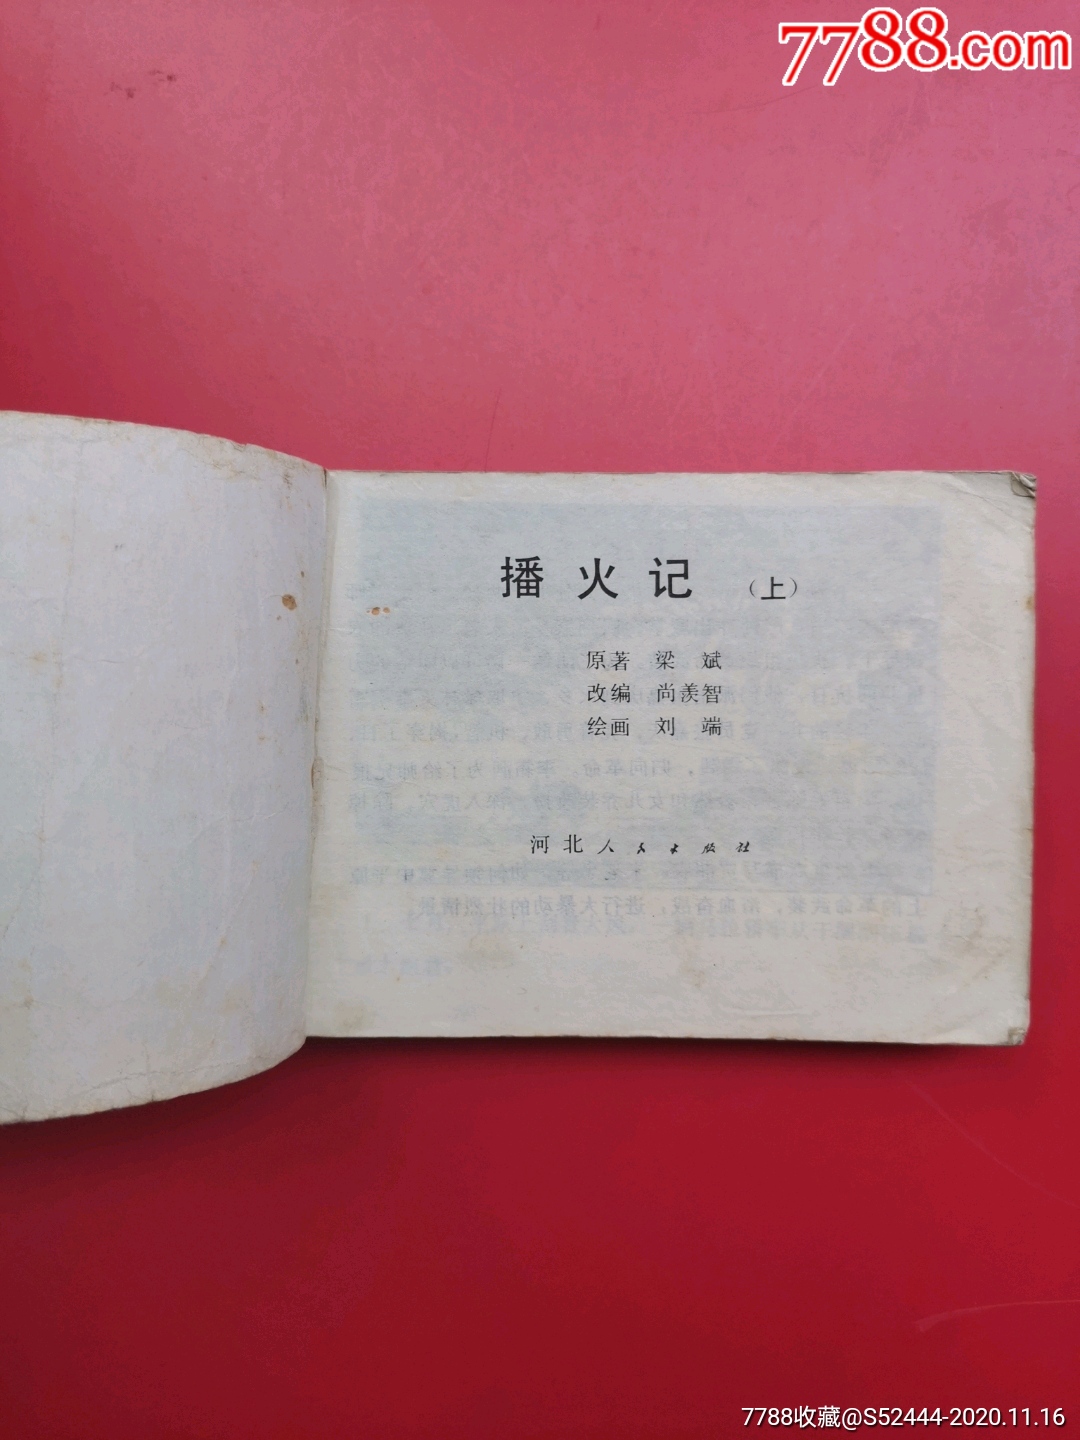 7788.com
播火记（上）
原著 梁 斌
改编 尚羡智
绘画 刘 端
河北人民出版社
7788收藏@S52444-2020.11.16